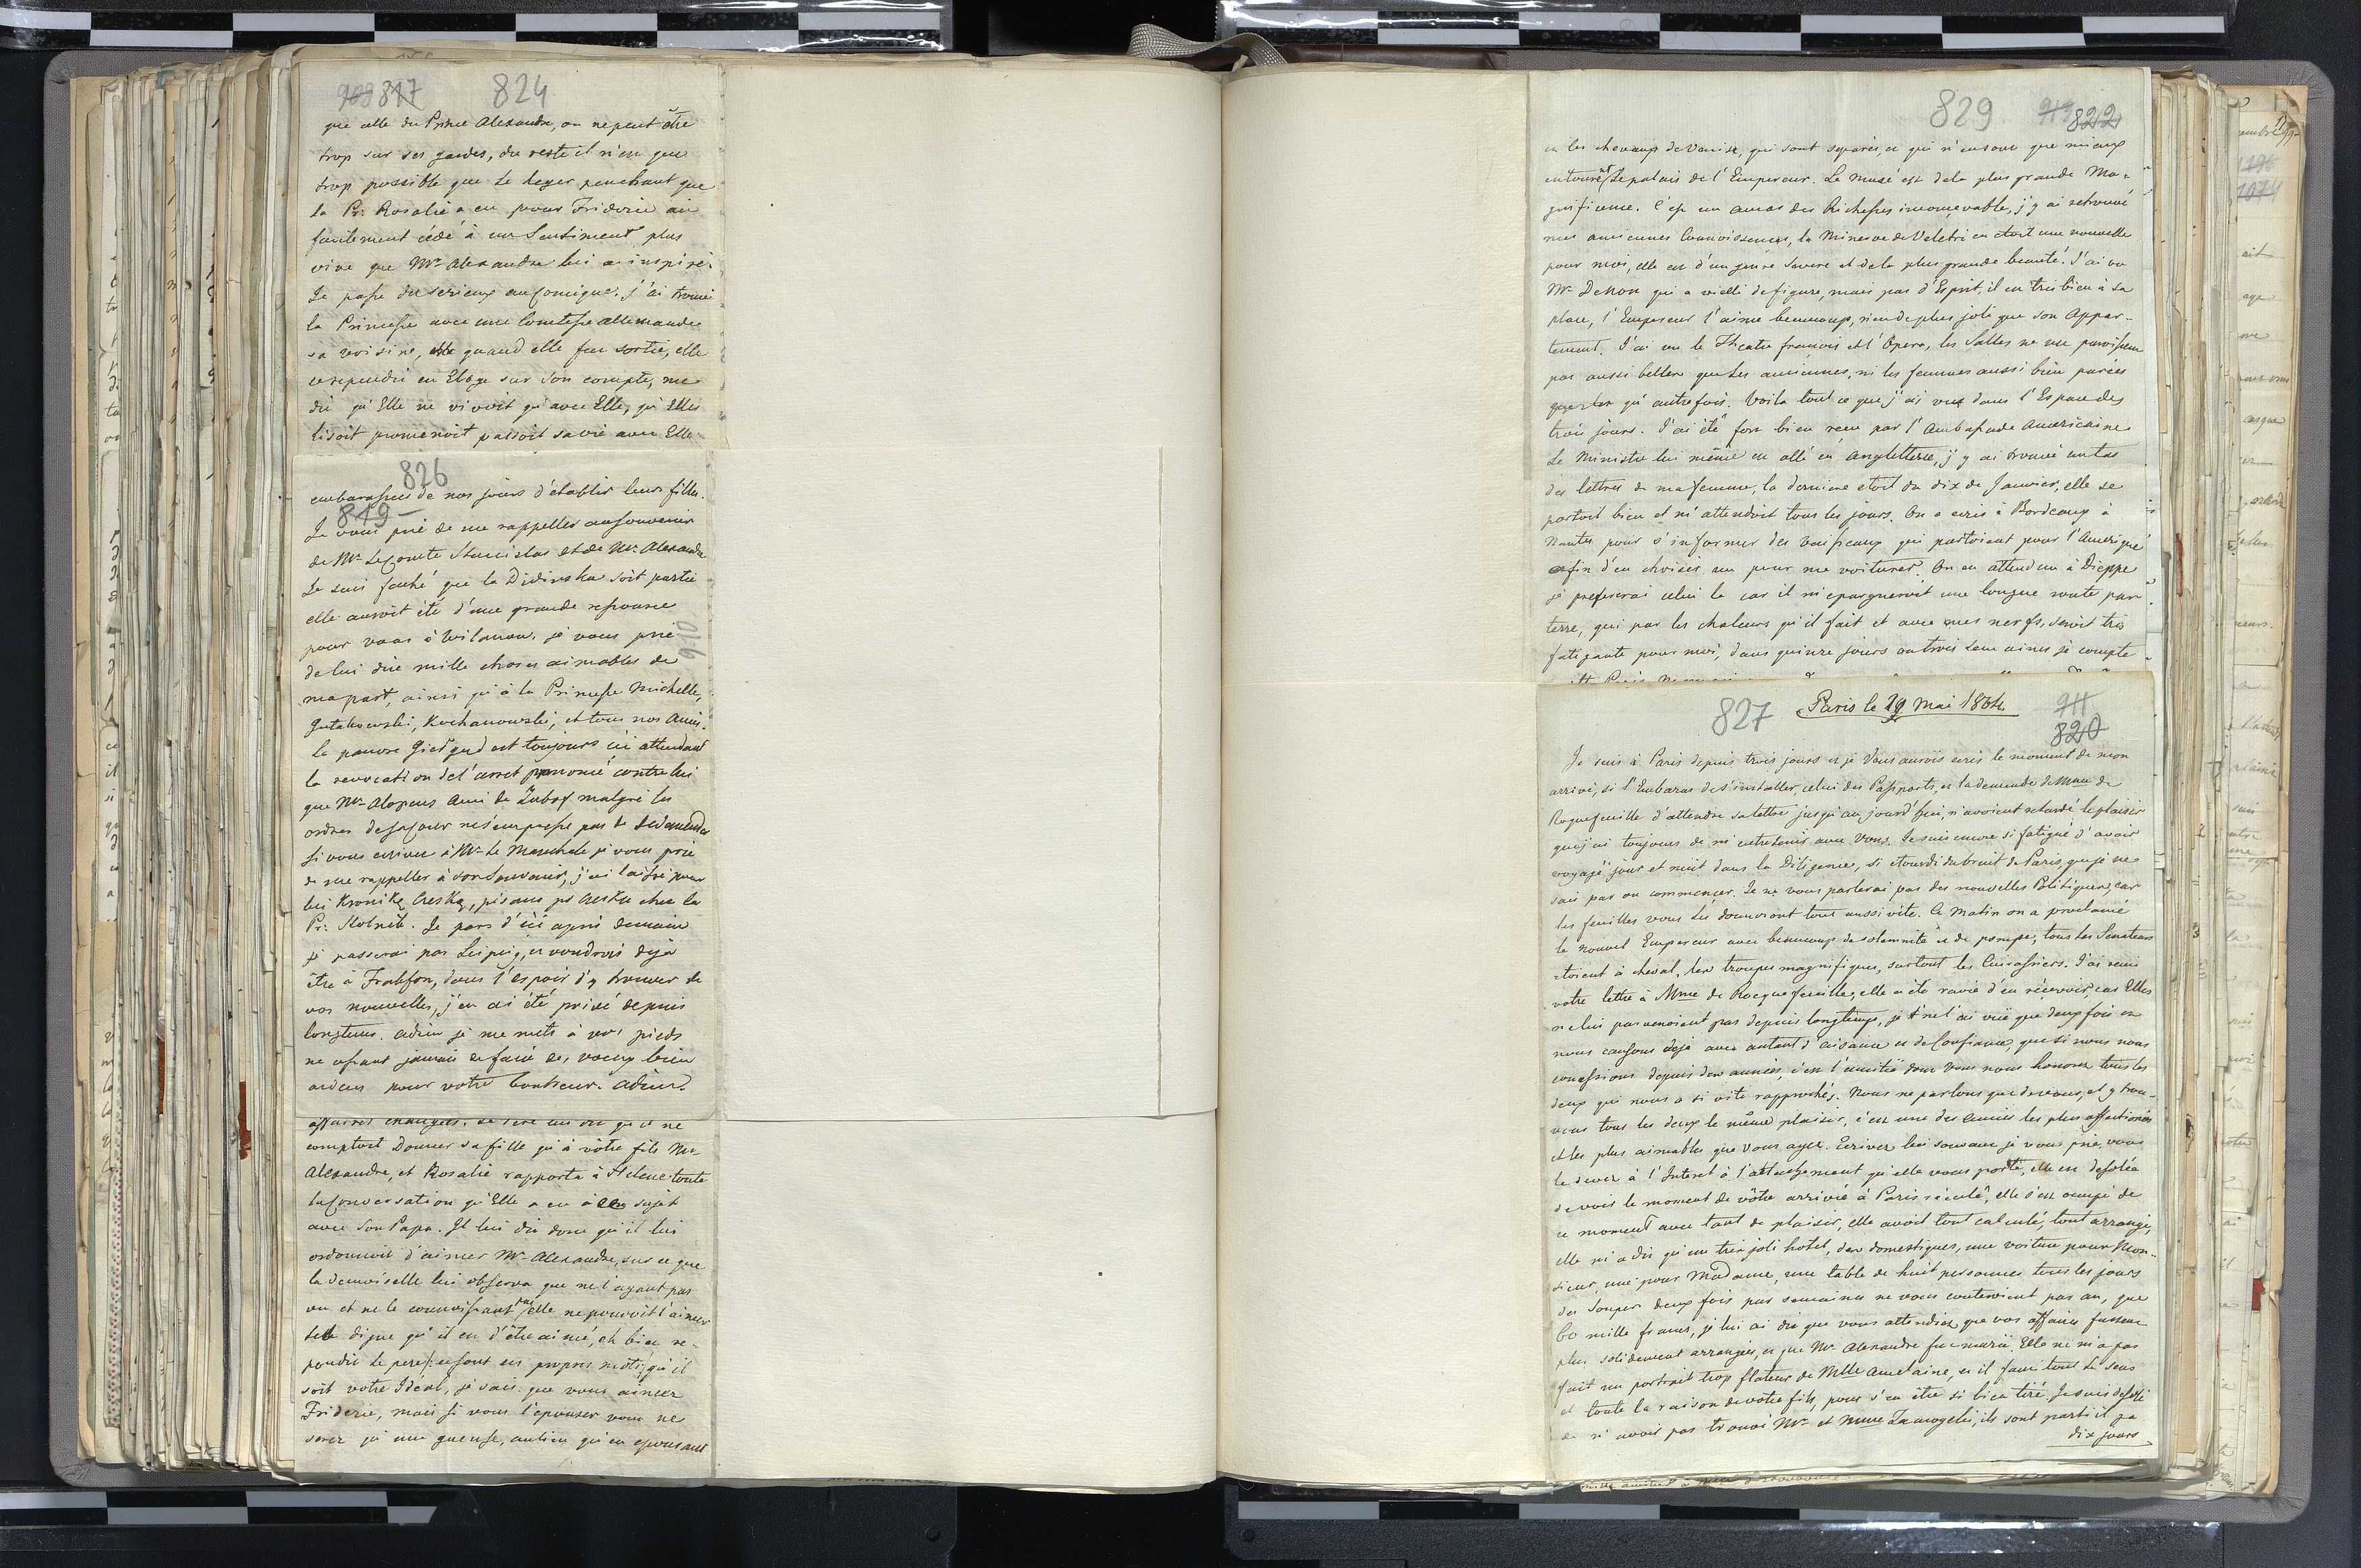 908 817 824
que celle du Prince Alexandre, on ne peut être
trop sur ses gardes, du reste il n'en que
trop possible que le leger penchant que
la Pr: Rosalie a eu pour Frideric ait
facilement cédé à un Sentiment plus
vive que Mr Alexandre lui a inspiré.
Je passe du serieux au comique. J'ai trouvé
la Princesse avec une Comtesse allemande
sa voisine, quand elle fut sortie, elle
se repandit en Eloge sur son compte, me
dit qu'Elle ne vivoit qu'avec Elle, qu'Elle
lisoit promenoit passoit sa vie avec Elle
826
embarassées de nos jours d'etablir leurs filles.
819
Je vous prie de me rappeller au souvenir
de Mr Le Comte Stanislas et de Mr Alexandre
Je suis faché que la Dziwinska soit partie
elle auroit été d'une grande ressource
pour vous à Wilanow. je vous prie
de lui dire mille choses aimables de
ma part, ainsi qu'à la Princesse Michelle,
Gutakowski, Kochanowski, et tous nos Amis.
le pauvre Giedgud est toujours ici attendant
la revocation de l'arret prononcé contre lui
que Mr Alopeus Ami de Zubof malgré les
ordres de sa Cour ne s'empresse pas de
si vous ecrivez à Mr le Marechale je vous prie
de me rappeller à son Souvenir, j'ai laissé pour
lui Kronikę Czeską, pisaną po Czesku chez la
Pr: . Je pars d'ici après demain
je passerai par Leipzig, et voudrois déja
être à Frakfort, dans l'espoir d'y trouver de
vos nouvelles, j'en ai été privé depuis
longtems. adieu je me mets à vos pieds
ne cessant jamais de faire des voeux bien
ardens pour votre bonheur. adieu.
910
affaires changées. Le Pere lui dit qu'il ne
comptoit Donner sa fille qu'à vôtre fils Mr
Alexandre, et Rosalie rapporta à Helene toute
la Conversation qu'Elle a eu à ce sujet
avec son Papa. Il lui dit donc qu'il lui
ordonnoit d'aimer Mr Alexandre, sur ce que
la demoiselle lui observa que ne l'ayant pas
vu et ne le connoissant pas elle ne pouvoit l'aimer
digne qu'il en d'être aimé, eh bien re-
pondit le pere (: ce sont ses propres mots:) qu'il
soit votre Idéal, je sais que vous aimez
Frideric, mais si vous l'epousez vous ne
serez qu'une gueuse, au lieu qu'en epousant
829 913 822
et les chevaux de Venise, qui sont separés, et qui n'ensont que mieux
entourent le palais de l'Empereur. Le Musé est dela plus grande Ma-
gnificence. C'est un amas des Richesses inconcevable, j'y ai retrouvé
mes anciennes Connoissences, la Minerve de Veletri en etoit une nouvelle
pour moi, elle est d'un genre severe et de la plus grande beauté. J'ai vu
Mr Denon qui a vielli de figure, mais pas d'Esprit, il est tres bien à sa
place, l'Empereur l'aime beaucoup, rien de plus joli que son Appar-
tement. J'ai vu le Theatre francois et l'Opera, les Salles ne me paroissent
pas aussi belles que les anciennes, ni les femmes aussi bien parées
qu'autrefois. Voila tout ce que j'ai vu dans l'Espace des
trois jours. J'ai été fort bien recu par l'Ambassade Americaine
Le Ministre lui même est allé en Angletterre, j'y ai trouvé un tas
des lettres de ma femme, la derniere etoit du dix de Janvier, elle se
portoit bien et m'attendoit tous les jours. On a ecris à Bordeaux à
Nantes pour s'informer des vaisseaux qui partoient pour l'Amerique
afin d'en choisir un pour me voiturer. On en attend un à Dieppe
je prefererai celui la car il m'epargneroit une longue route par
terre, qui par les chaleurs qu'il fait et avec mes nerfs, seroit tres
fatigante pour moi, dans quinze jours ou trois semaines je compte
827 Paris le 19 Mai 1804 911
820
Je suis à Paris depuis trois jours et je Vous aurois ecris le moment de mon
arrivé, si l'Embaras de s'installer, celui des Passports, et la demande de Mme de
Roquefeuille d'attendre sa lettre jusqu'aujourd'hui, n'avoient retardé le plaisir
que j'ai toujours de m'entretenir avec Vous. Je suis encore si fatigué d'avoir
voyagé jour et nuit dans la Diligence, si etourdi du bruit de Paris que je ne
sais par ou commencer. Je ne vous parlerai pas des nouvelles Politiques, car
les feuilles vous les donneront tout aussi vite. Ce matin on a proclamé
le nouvel Empereur avec beaucoup de solemnité et de pompe, tous les Senateurs
etoient à cheval, les troupes magnifiques, surtout les Cuirassiers. J'ai remis
votre lettre à Mme de Rocquefeuille, elle a été ravie d'en recevoir, car Elles
ne lui parvenoient pas depuis longtemps, je ne l'ai vuë que deux fois et
nous causons deja avec autant d'aisance et de Confiance, que si nous nous
conessions depuis des années, c'est l'amitié dont Vous nous honorez tous les
deux qui nous a si vite rapprochés. Nous ne parlons que de vous, et y trou-
vons tous les deux le même plaisir, c'est une des amies les plus affectionées
et les plus aimables que vous ayez. Ecrivez lui souvent je vous prie, vous
le devez à l'Interet à l'attachement qu'elle vous porte, elle est desolée
de voir le moment de vôtre arrivée à Paris réculé, elle s'est occupé de
ce moment avec tant de plaisir, elle avoit tout calculé, tout arrangé,
elle m'a dit qu'un tres joli hotel, des domestiques, une voiture pour Mon-
sieur, une pour Madame, une table de huit personnes tous les jours
des Souper deux fois par semaines ne vous couteroient par an, que
60 mille francs, je lui ai dis que vous attendiez que vos affaires fussent
plus solidement arrangées, et que Mr Alexandre fut marié. Elle ne m'a pas
fait un portrait trop flateur de Mlle Amelaine, et il faut tout le sens
et toute la raison de votre fils, pour s'en être si bien tiré. Je suis desolé
de n'avoir pas trouvé Mr et Mme Zamoyski, ils sont parti il ya
dix jours